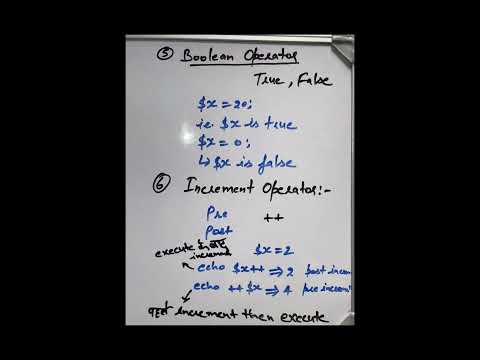 ⑤ Boolean Operator
True, False
$x = 20;
i.e. $x is true
$x = 0;
↳ $x is false
⑥ Increment Operator:-
Pre ++
Post
execute
increme $x = 2
echo $x++ ⇒ 2 post increm
echo ++$x ⇒ 4 pre increm
increment then execute